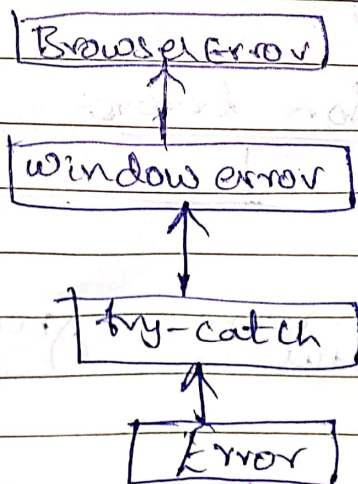 Browser Error
window error
try-catch
Error